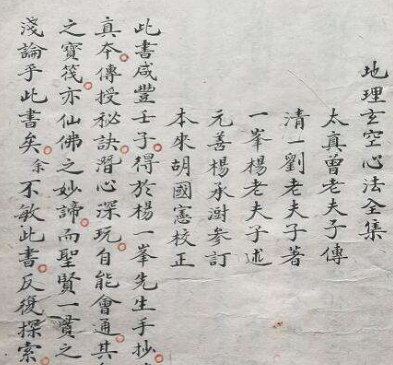 地理玄空心法全集
太真曾老夫子傳
清一劉老夫子著
一峯楊老夫子述
元善楊承澍參訂
本來胡國憲校正
此書咸豐壬子得於楊一峯先生手抄
真本傳授秘訣潛心深玩自能會通其
之寶筏亦仙佛之妙諦而聖賢一貫之
淺論乎此書矣余不敏此書反復探索